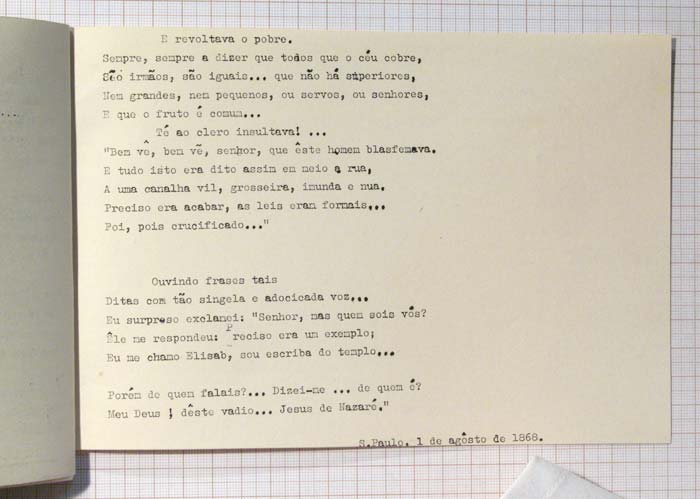 E revoltava o pobre.
Sempre, sempre a dizer que todos que o céu cobre,
São irmãos, são iguais... que não há superiores,
Nem grandes, nem pequenos, ou servos, ou senhores,
E que o fruto é comum...
Té ao clero insultava! ...
"Bem vê, bem vê, senhor, que êste homem blasfemava.
E tudo isto era dito assim em meio a rua,
A uma canalha vil, grosseira, imunda e nua.
Preciso era acabar, as leis eram formais...
Poi, pois crucificado..."
Ouvindo frases tais
Ditas com tão singela e adocicada voz...
Eu surpreso exclamei: "Senhor, mas quem sois vós?
Êle me respondeu: Preciso era um exemplo;
Eu me chamo Elisab, sou escriba do templo...
Porém de quem falais?... Dizei-me ... de quem é?
Meu Deus ! dêste vadio... Jesus de Nazaré."
S.Paulo, 1 de agôsto de 1868.